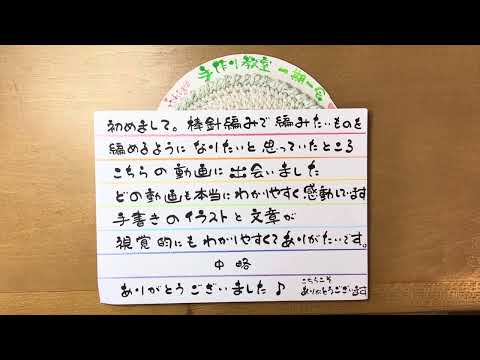 手作り教室 一期一会
初めまして。棒針編みで編みたいものを
編めるようになりたいと思っていたところ
こちらの動画に出会いました
どの動画も本当にわかりやすく感動しています
手書きのイラストと文章が
視覚的にもわかりやすくてありがたいです。
中略
ありがとうございました♪
こちらこそ
ありがとうございます